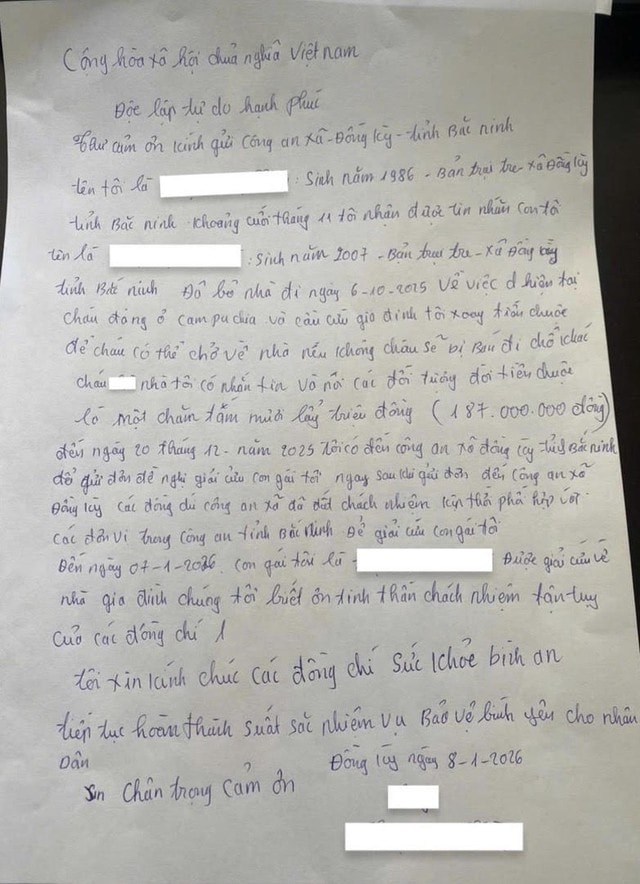 Cộng hòa xã hội chủa nghĩa Việt nam
Độc lập tự do hạnh phúc
Thư cảm ơn kính gửi Công an xã - Đồng Kỳ - tỉnh Bắc ninh
tên tôi là : Sinh năm 1986 - Bản trại tre - xã Đồng Kỳ
tỉnh Bắc ninh khoảng cuối tháng 11 tôi nhận được tin nhắn con tôi
tên là : Sinh năm 2007 - Bản trại tre - xã Đồng Kỳ
tỉnh Bắc ninh Đã bỏ nhà đi ngày 6-10-2025 về việc hiện tại
cháu đang ở campuchia và cầu cứu gia đình tôi xoay tiền chuộc
để cháu có thể chở về nhà nếu không cháu sẽ bị Bán đi chỗ khác
cháu nhà tôi có nhắn tin và nói các đối tượng đòi tiền chuộc
là một chăm tắm mươi bẩy triệu đồng (187.000.000 đồng)
đến ngày 20 tháng 12 - năm 2025 tôi có đến công an xã đồng kỳ tỉnh Bắc ninh
để gửi đơn đề nghị giải cứu con gái tôi ngay sau khi gửi đơn đến công an xã
Đồng Kỳ các đồng chí công an xã đã chách nhiệm kịp thời phối hợp với
các đơn vị trong công an tỉnh Bắc Ninh Để giải cứu con gái tôi
Đến ngày 07-1-2026 con gái tôi là Được giải cứu về
nhà gia đình chung tôi biết ơn tinh thần chách nhiệm tận tụy
của các đồng chí
tôi xin kính chúc các đồng chí sức khỏe bình an
tiếp tục hoàn thành suất sắc nhiệm vụ Bảo vệ bình yên cho nhân
Dân Đồng Kỳ ngày 8-1-2026
xin Chân trọng cảm ơn